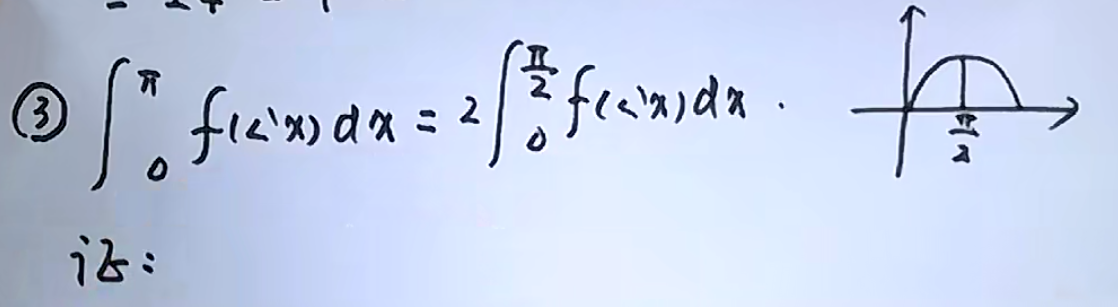 ③ ∫₀^π f(sin x) dx = 2∫₀^(π/2) f(sin x) dx.
π/2
证: